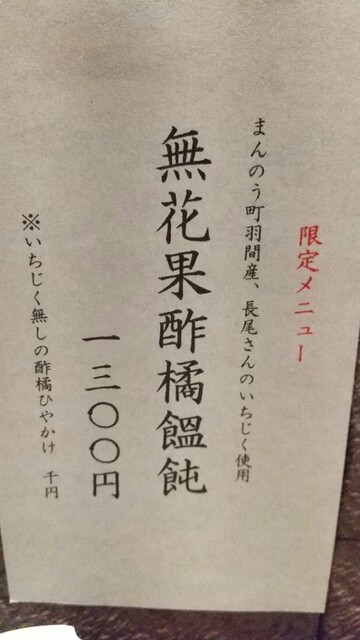 限定メニュー
まんのう町羽間産、長尾さんのいちじく使用
無花果酢橘饂飩
一三〇〇円
※いちじく無しの酢橘ひやかけ 千円